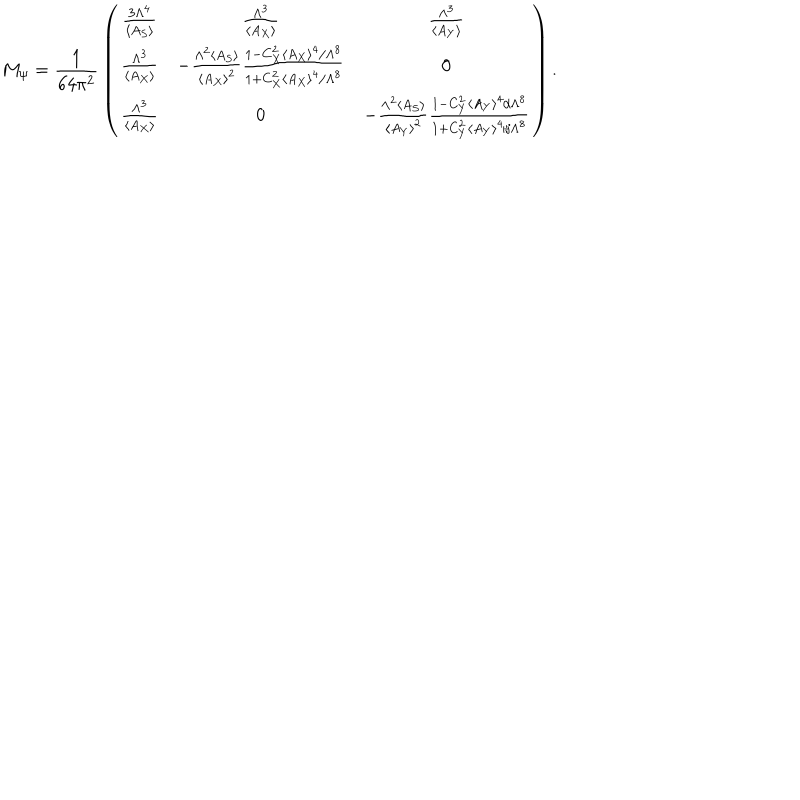 M_\psi = \frac{1}{64\pi^2} \left( \begin{array}{ccc} \frac{3\Lambda^4}{\langle A_S \rangle} & \frac{\Lambda^3}{\langle A_X \rangle} & \frac{\Lambda^3}{\langle A_Y \rangle} \\ \frac{\Lambda^3}{\langle A_X \rangle} & -\frac{\Lambda^2 \langle A_S \rangle}{\langle A_X \rangle^2} \frac{1 - C_X^2 \langle A_X \rangle^4 / \Lambda^8}{1 + C_X^2 \langle A_X \rangle^4 / \Lambda^8} & 0 \\ \frac{\Lambda^3}{\langle A_X \rangle} & 0 & -\frac{\Lambda^2 \langle A_S \rangle}{\langle A_Y \rangle^2} \frac{1 - C_Y^2 \langle A_Y \rangle^4 \Lambda^8}{1 + C_Y^2 \langle A_Y \rangle^4 \Lambda^8} \end{array} \right) .